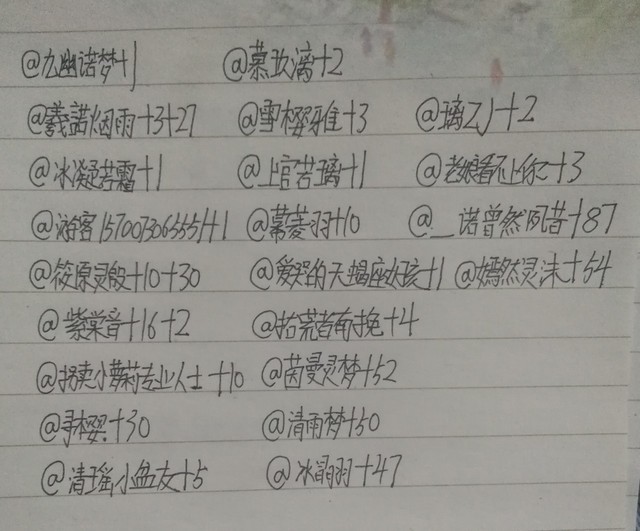 @九幽诺梦+1 @慕玖漓+2
@羲諾烟雨+3+27 @雪樱雅+3 @璃ZJ+2
@冰凝若霜+1 @上官若璃+1 @老娘看不上你~+3
@游客1570073065551+1 @慕菱羽+10 @__诺曾然夙昔+87
@筱原灵殷+10+30 @爱哭的天蝎座女孩+1 @嫣然灵沫+54
@紫棠音+16+2 @拾荒者南挽+4
@拐卖小萝莉专业人士+10 @茵曼灵梦+52
@寻樱+30 @清雨梦+50
@清瑶小盆友+5 @冰翩羽+47